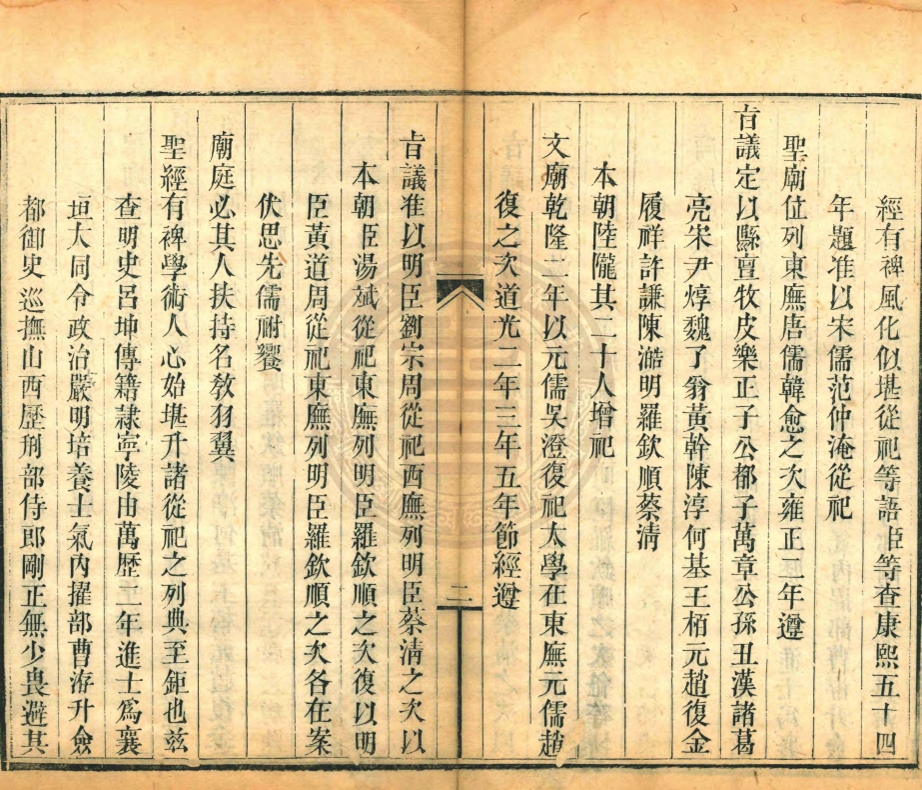 經有裨風化似堪從祀等語臣等查康熙五十四
年題准以宋儒范仲淹從祀
聖廟位列東廡唐儒韓愈之次雍正二年遵
旨議定以縣亶牧皮樂正子公都子萬章公孫丑漢諸葛
亮宋尹焞魏了翁黃幹陳淳何基王柏元趙復金
履祥許謙陳澔明羅欽順蔡清
本朝陸隴其二十人增祀
文廟乾隆二年以元儒吳澄復祀太學在東廡元儒趙
復之次道光二年三年五年節經遵
二
旨議准以明臣劉宗周從祀西廡列明臣蔡清之次以
本朝臣湯斌從祀東廡列明臣羅欽順之次復以明
臣黃道周從祀東廡列明臣羅欽順之次各在案
伏思先儒祔饗
廟庭必其人扶持名敎羽翼
聖經有裨學術人心始堪升諸從祀之列典至鉅也兹
查明史呂坤傳籍隸寧陵由萬歷二年進士爲襄
垣大同令政治嚴明培養士氣內擢部曹洊升僉
都御史巡撫山西歷刑部侍郎剛正無少畏避其